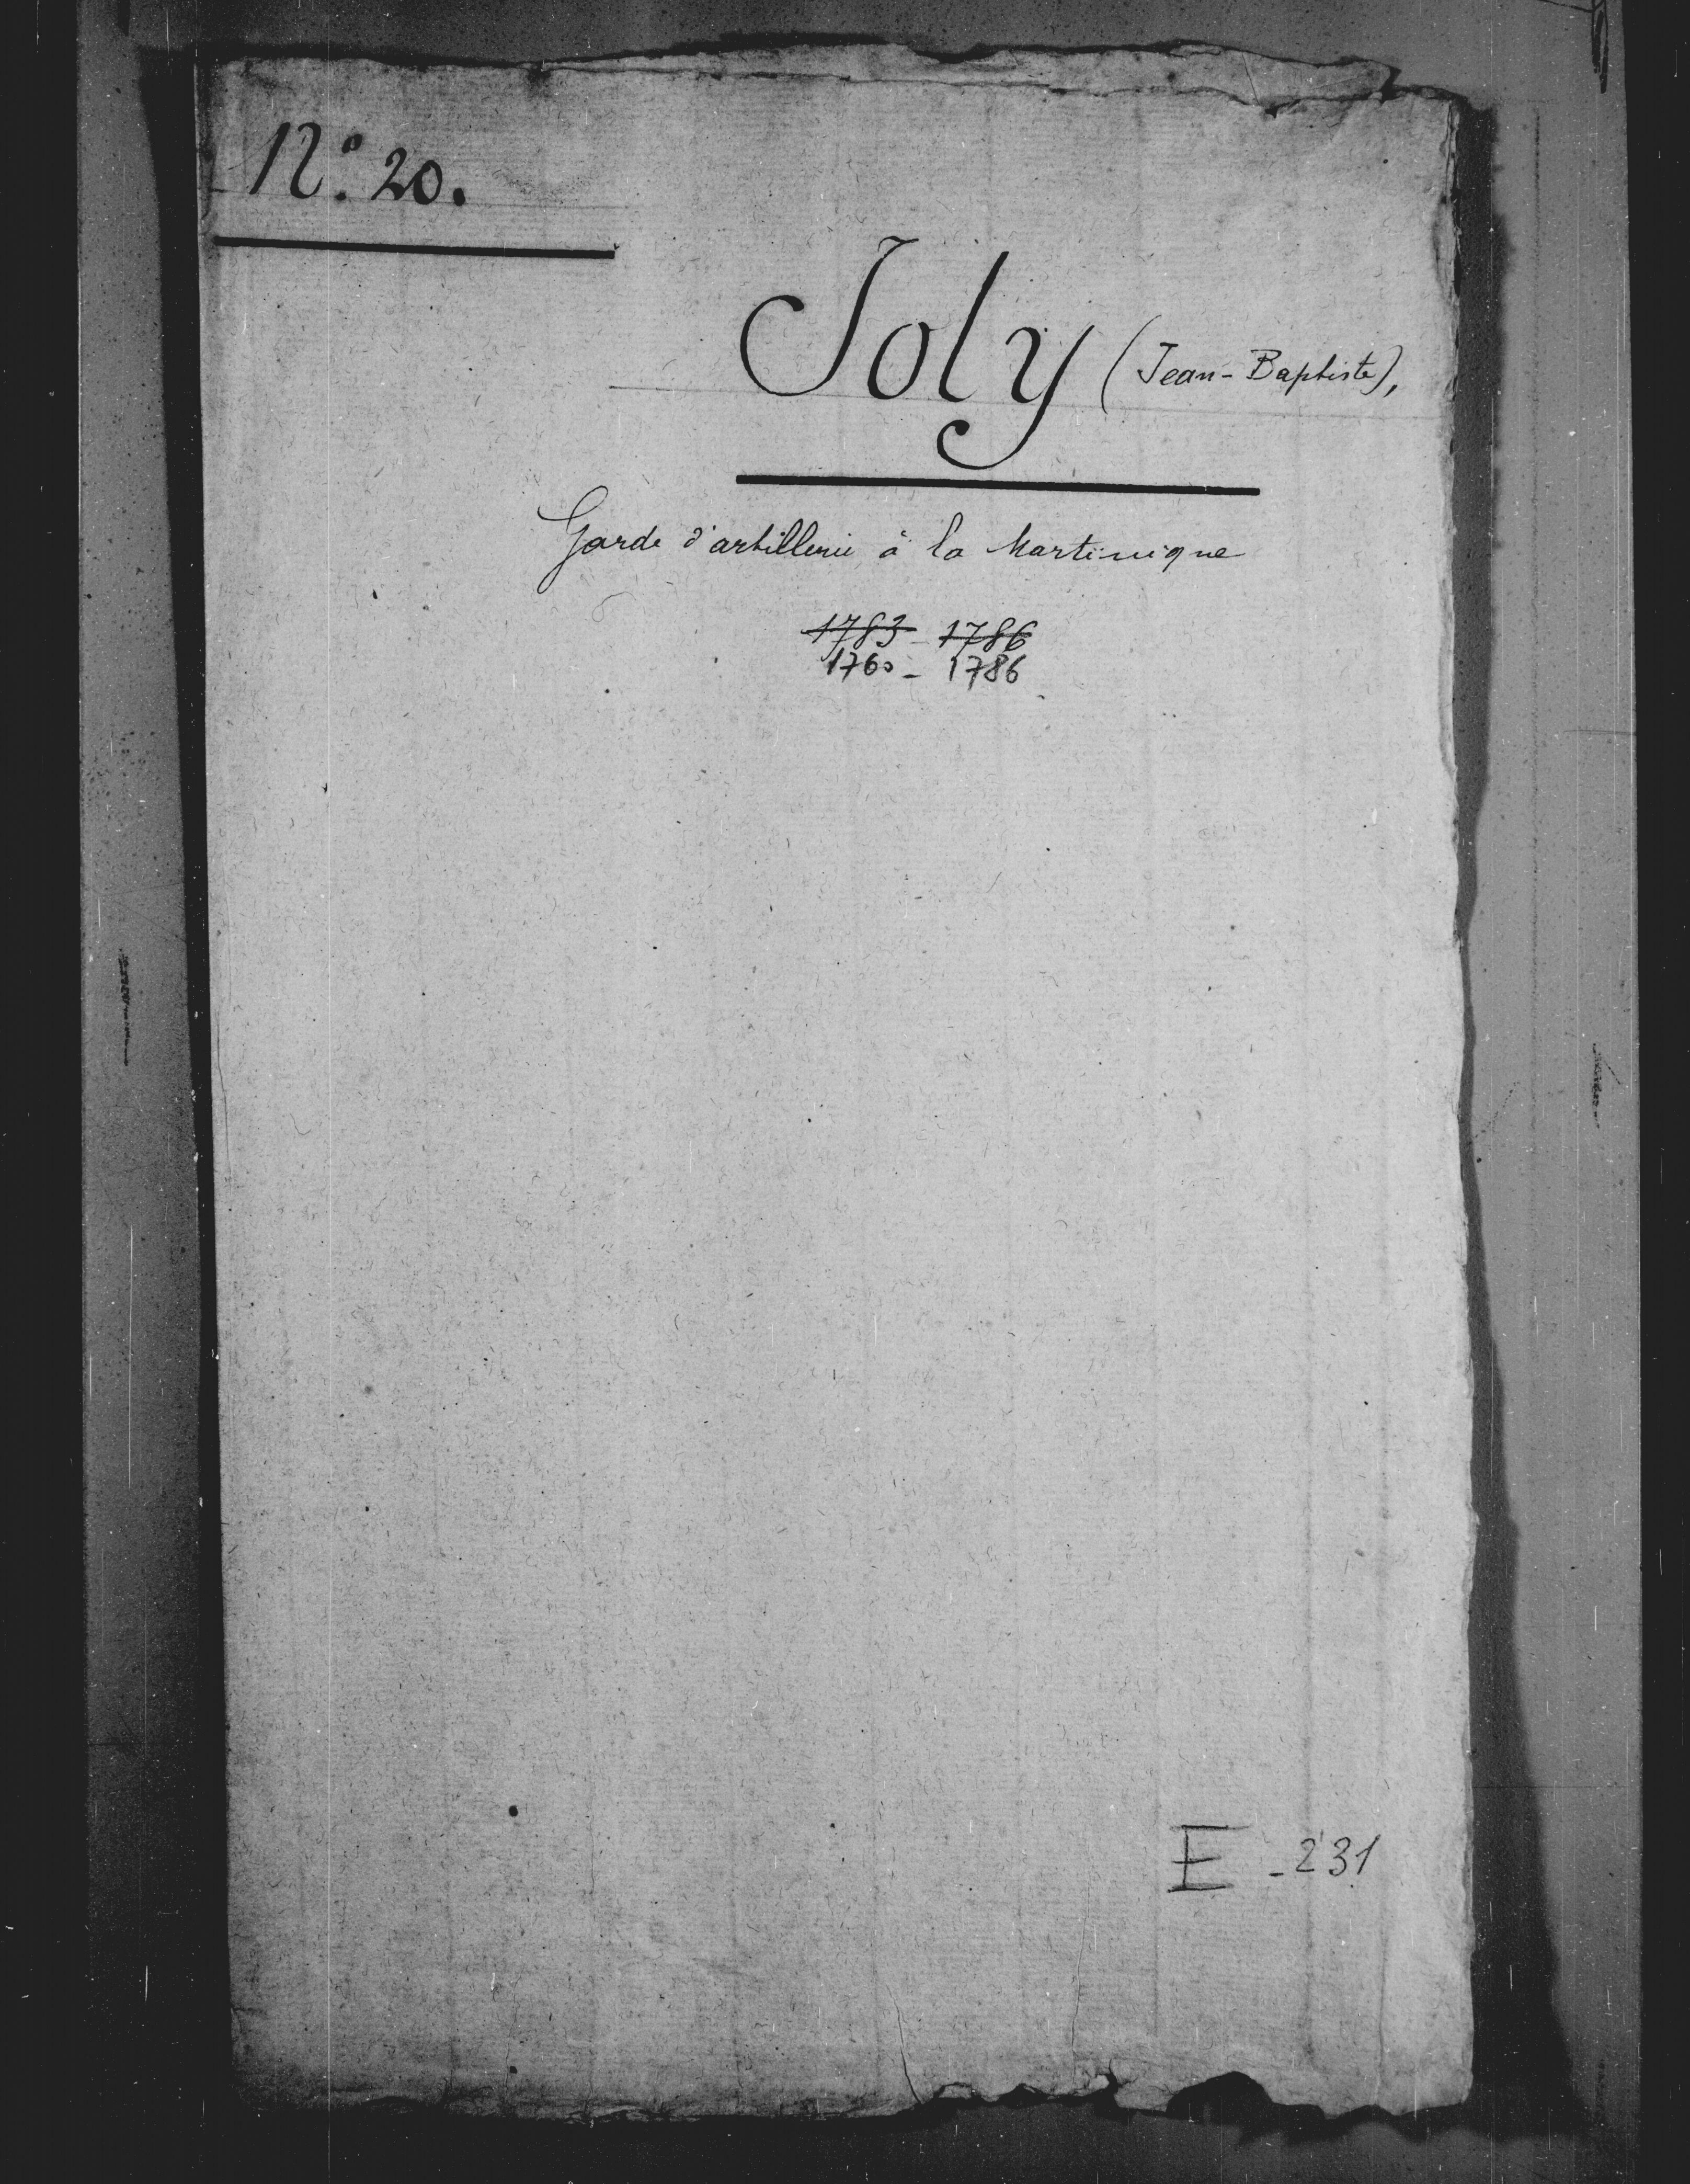 N.° 20.
Joly (Jean-Baptiste),
Garde d'artillerie à la Martinique
1783 - 1786
1760 - 1786
E - 231